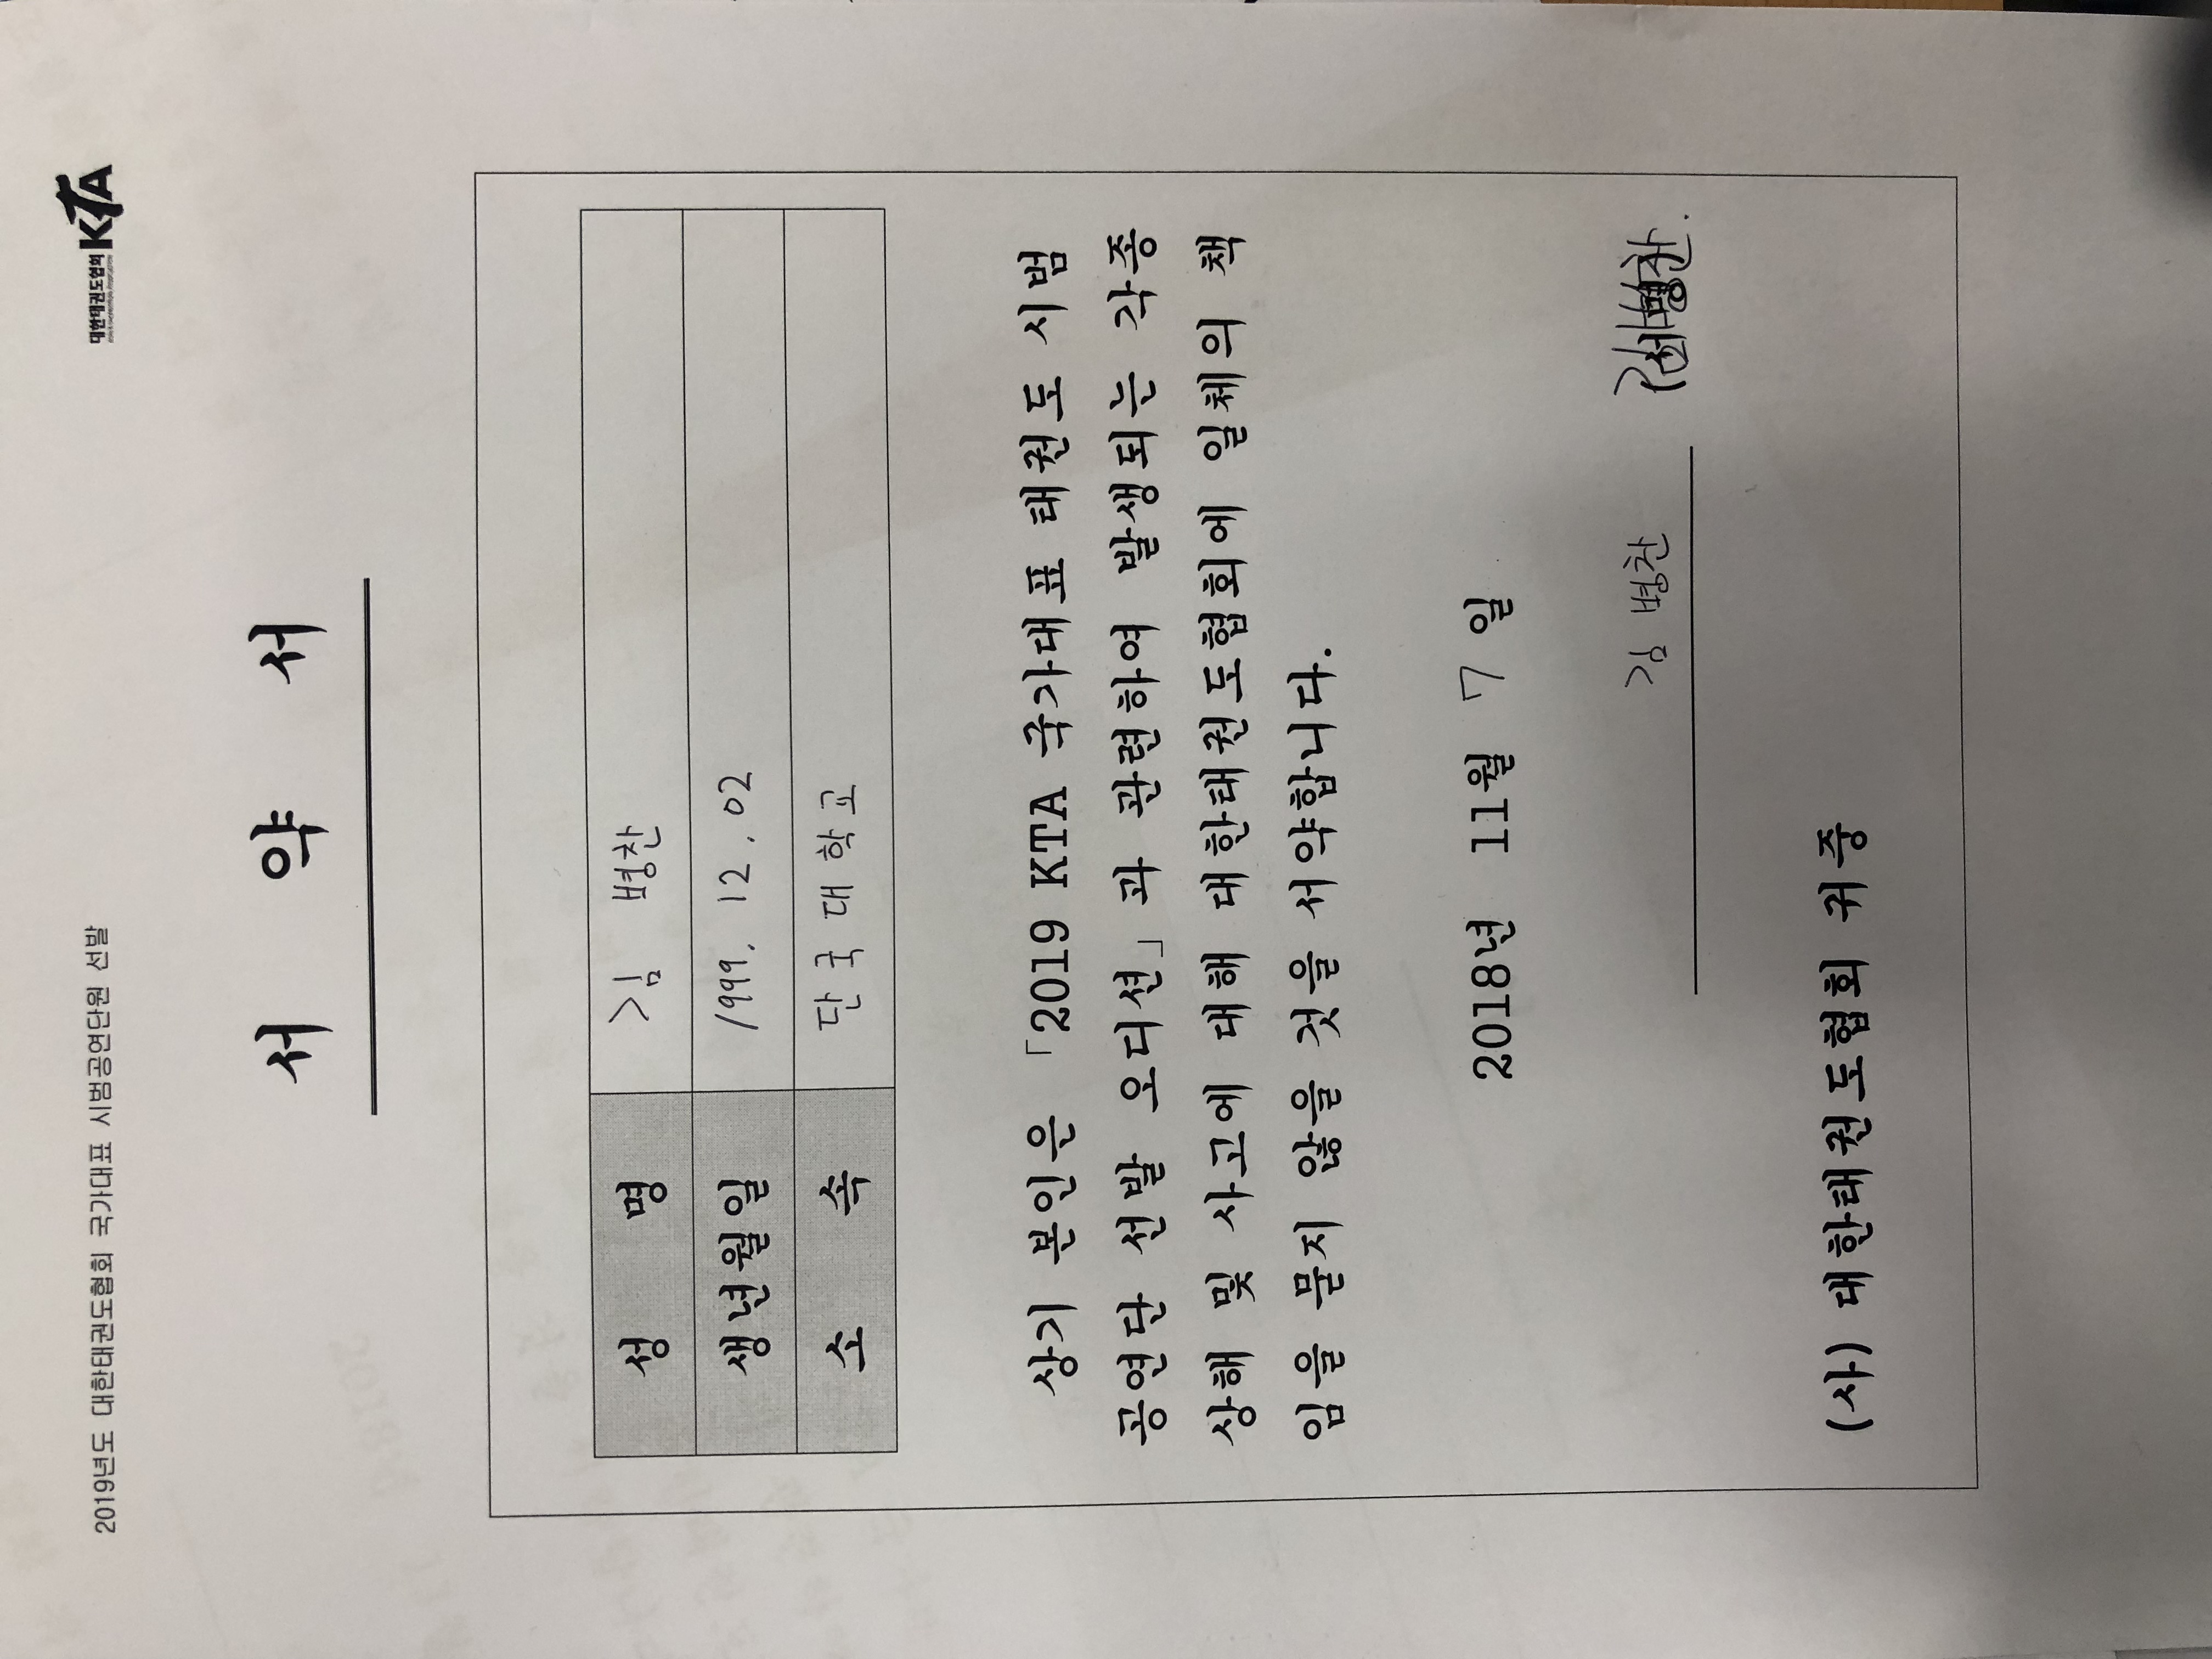 2019년도 대한태권도협회 국가대표 시범공연단원 선발
대한태권도협회 KTA
서 약 서
성 명 김 병찬
생년월일 1999. 12. 02
소 속 단국대학교
상기 본인은 「2019 KTA 국가대표 태권도 시범
공연단 선발 오디션」과 관련하여 발생되는 각종
상해 및 사고에 대해 대한태권도협회에 일체의 책
임을 묻지 않을 것을 서약합니다.
2018년 11월 7일
김 병찬 (서명)
(사) 대한태권도협회 귀중